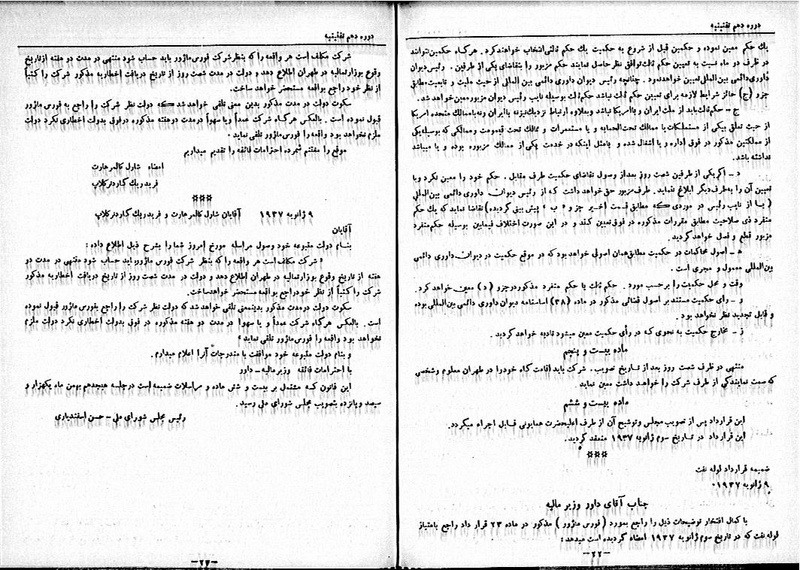 دوره دهم تقنینیه
یك حکم معین نموده و حکمین قبل از شروع به حکمیت یك حکم ثالثی انتخاب خواهند کرد . هرگاه حکمین نتوانند
در ظرف دو ماه نسبت به تعیین حکم ثالث توافق نظر حاصل نمایند حکم مزبور را بتقاضای یکی از طرفین . رئیس دیوان
داوری دائمی بین المللی تعیین خواهد نمود . چنانچه رئیس دیوان داوری دائمی بین المللی از حیث ملیت و تابعیت مطابق
جزء (ج) حائز شرایط لازمه برای تعیین حکم ثالث نباشد حکم ثالث بوسیله نایب رئیس دیوان مزبور معین خواهد شد .
ج – حکم ثالث باید از ملت ایران و یا امریکا نباشد و بعلاوه ارتباط نزدیك نیز نه با ایران و نه با ممالك متحده امریکا
از حیث تعلق بیکی از مستملکات یا ممالك تحت الحمایه و یا مستعمرات و ممالك تحت قیمومت و ممالکی که بوسیله یکی
از مملکتین مذکور در فوق اداره و یا اشغال شده و یا مثل اینکه در خدمت یکی از ممالك مزبوره بوده و یا میباشد
نداشته باشد .
د – اگر یکی از طرفین شصت روز بعد از وصول تقاضای حکمیت طرف مقابل ، حکم خود را معین نکرد و یا
تعیین آن را بطرف دیگر ابلاغ ننماید . طرف مزبور حق خواهد داشت که از رئیس دیوان داوری دائمی بین المللی
( یا از نایب رئیس در موردی که مطابق قسمت اخیر جزء « ب » پیش بینی گردیده ) تقاضا نماید که یك حکم
منفرد ذی صلاحیت مطابق مقررات مذکوره در فوق تعیین کند و در این صورت اختلاف فیمابین بوسیله حکم منفرد
مزبور قطع و فصل خواهد گردید .
ه – اصول محاکمات در حکمیت مطابق همان اصولی خواهد بود که در موقع حکمیت در دیوان داوری دائمی
بین المللی معمول و مجری است .
وقت و محل حکمیت را بر حسب مورد . حکم ثالث یا حکم منفرد مذکور در جزء ( د ) معین خواهد کرد .
و – رأی حکمیت مستند بر اصول قضائی مذکور در ماده (۳۸) اساسنامه دیوان داوری دائمی بین المللی بوده
و قابل تجدید نظر نخواهد بود
ز – مخارج حکمیت به نحوی که در رأی حکمیت معین میشود تادیه خواهد گردید .
ماده بیست و پنجم
منتهی در ظرف شصت روز بعد از تاریخ تصویب . شرکت باید اقامت گاه خود را در طهران معلوم و شخصی
که سمت نمایندگی از طرف شرکت را خواهد داشت معین نماید .
ماده بیست و ششم
این قرارداد پس از تصویب مجلس و توشیح آن از طرف اعلیحضرت همایونی قابل اجراء میگردد .
این قرار داد در تاریخ سوم ژانویه ۱۹۳۷ منعقد گردید .
***
ضمیمه قرارداد لوله نفت
۹ ژانویه ۱۹۳۷
جناب آقای داور وزیر مالیه
با کمال افتخار توضیحات ذیل را راجع بمورد ( فورس ماژور ) مذکور در ماده ۲۳ قرار داد راجع بامتیاز
لوله نفت که در تاریخ سوم ژانویه ۱۹۳۷ امضاء گردیده است میدهد :
–۲۲–
دوره دهم تقنینیه
شرکت مکلف است هر واقعه را که بنظر شرکت فورس ماژور باید حساب شود منتهی در مدت دو هفته از تاریخ
وقوع بوزارت مالیه در طهران اطلاع دهد و دولت در مدت شصت روز از تاریخ دریافت اخطاریه مذکور شرکت را کتباً
از نظر خود راجع بواقعه مستحضر خواهد ساخت .
سکوت دولت در مدت مذکور بدین معنی تلقی خواهد شد که دولت نظر شرکت را راجع به فورس ماژور
قبول نموده است . بالعکس هرگاه شرکت عمداً و یا سهواً در مدت دو هفته مذکوره در فوق بدولت اخطاری نکرد دولت
ملزم نخواهد بود واقعه را فورس ماژور تلقی نماید .
موقع را مغتنم شمرده احترامات فائقه را تقدیم میداریم
امضاء شاول کالمر هارت
فرید ریك گاردنر کلاپ
***
۹ ژانویه ۱۹۳۷ آقایان شاول کالمر هارت و فرید ریك گاردنر کلاپ
آقایان
بنام دولت متبوعه خود وصول مراسله مورخ امروز شما را بشرح ذیل اطلاع داده :
« شرکت مکلف است هر واقعه را که بنظر شرکت فورس ماژور باید حساب شود منتهی در مدت دو
هفته از تاریخ وقوع بوزارت مالیه در طهران اطلاع دهد و دولت در مدت شصت روز از تاریخ دریافت اخطاریه مذکور
شرکت را کتباً از نظر خود راجع بواقعه مستحضر خواهد ساخت .
سکوت دولت در مدت مذکور بدین معنی تلقی خواهد شد که دولت نظر شرکت را راجع بفورس ماژور قبول نموده
است . بالعکس هرگاه شرکت عمداً و یا سهواً در مدت دو هفته مذکوره در فوق بدولت اخطاری نکرد دولت ملزم
نخواهد بود واقعه را فورس ماژور تلقی نماید »
و بنام دولت متبوعه خود موافقت با مندرجات آنرا اعلام میدارم .
با احترامات فائقه وزیر مالیه – داور
این قانون که مشتمل بر بیست و شش ماده و مراسلات ضمیمه است در جلسه هیجدهم بهمن ماه یکهزار و
سیصد و پانزده بتصویب مجلس شورای ملی رسید .
رئیس مجلس شورای ملی – حسن اسفندیاری
–۲۳–